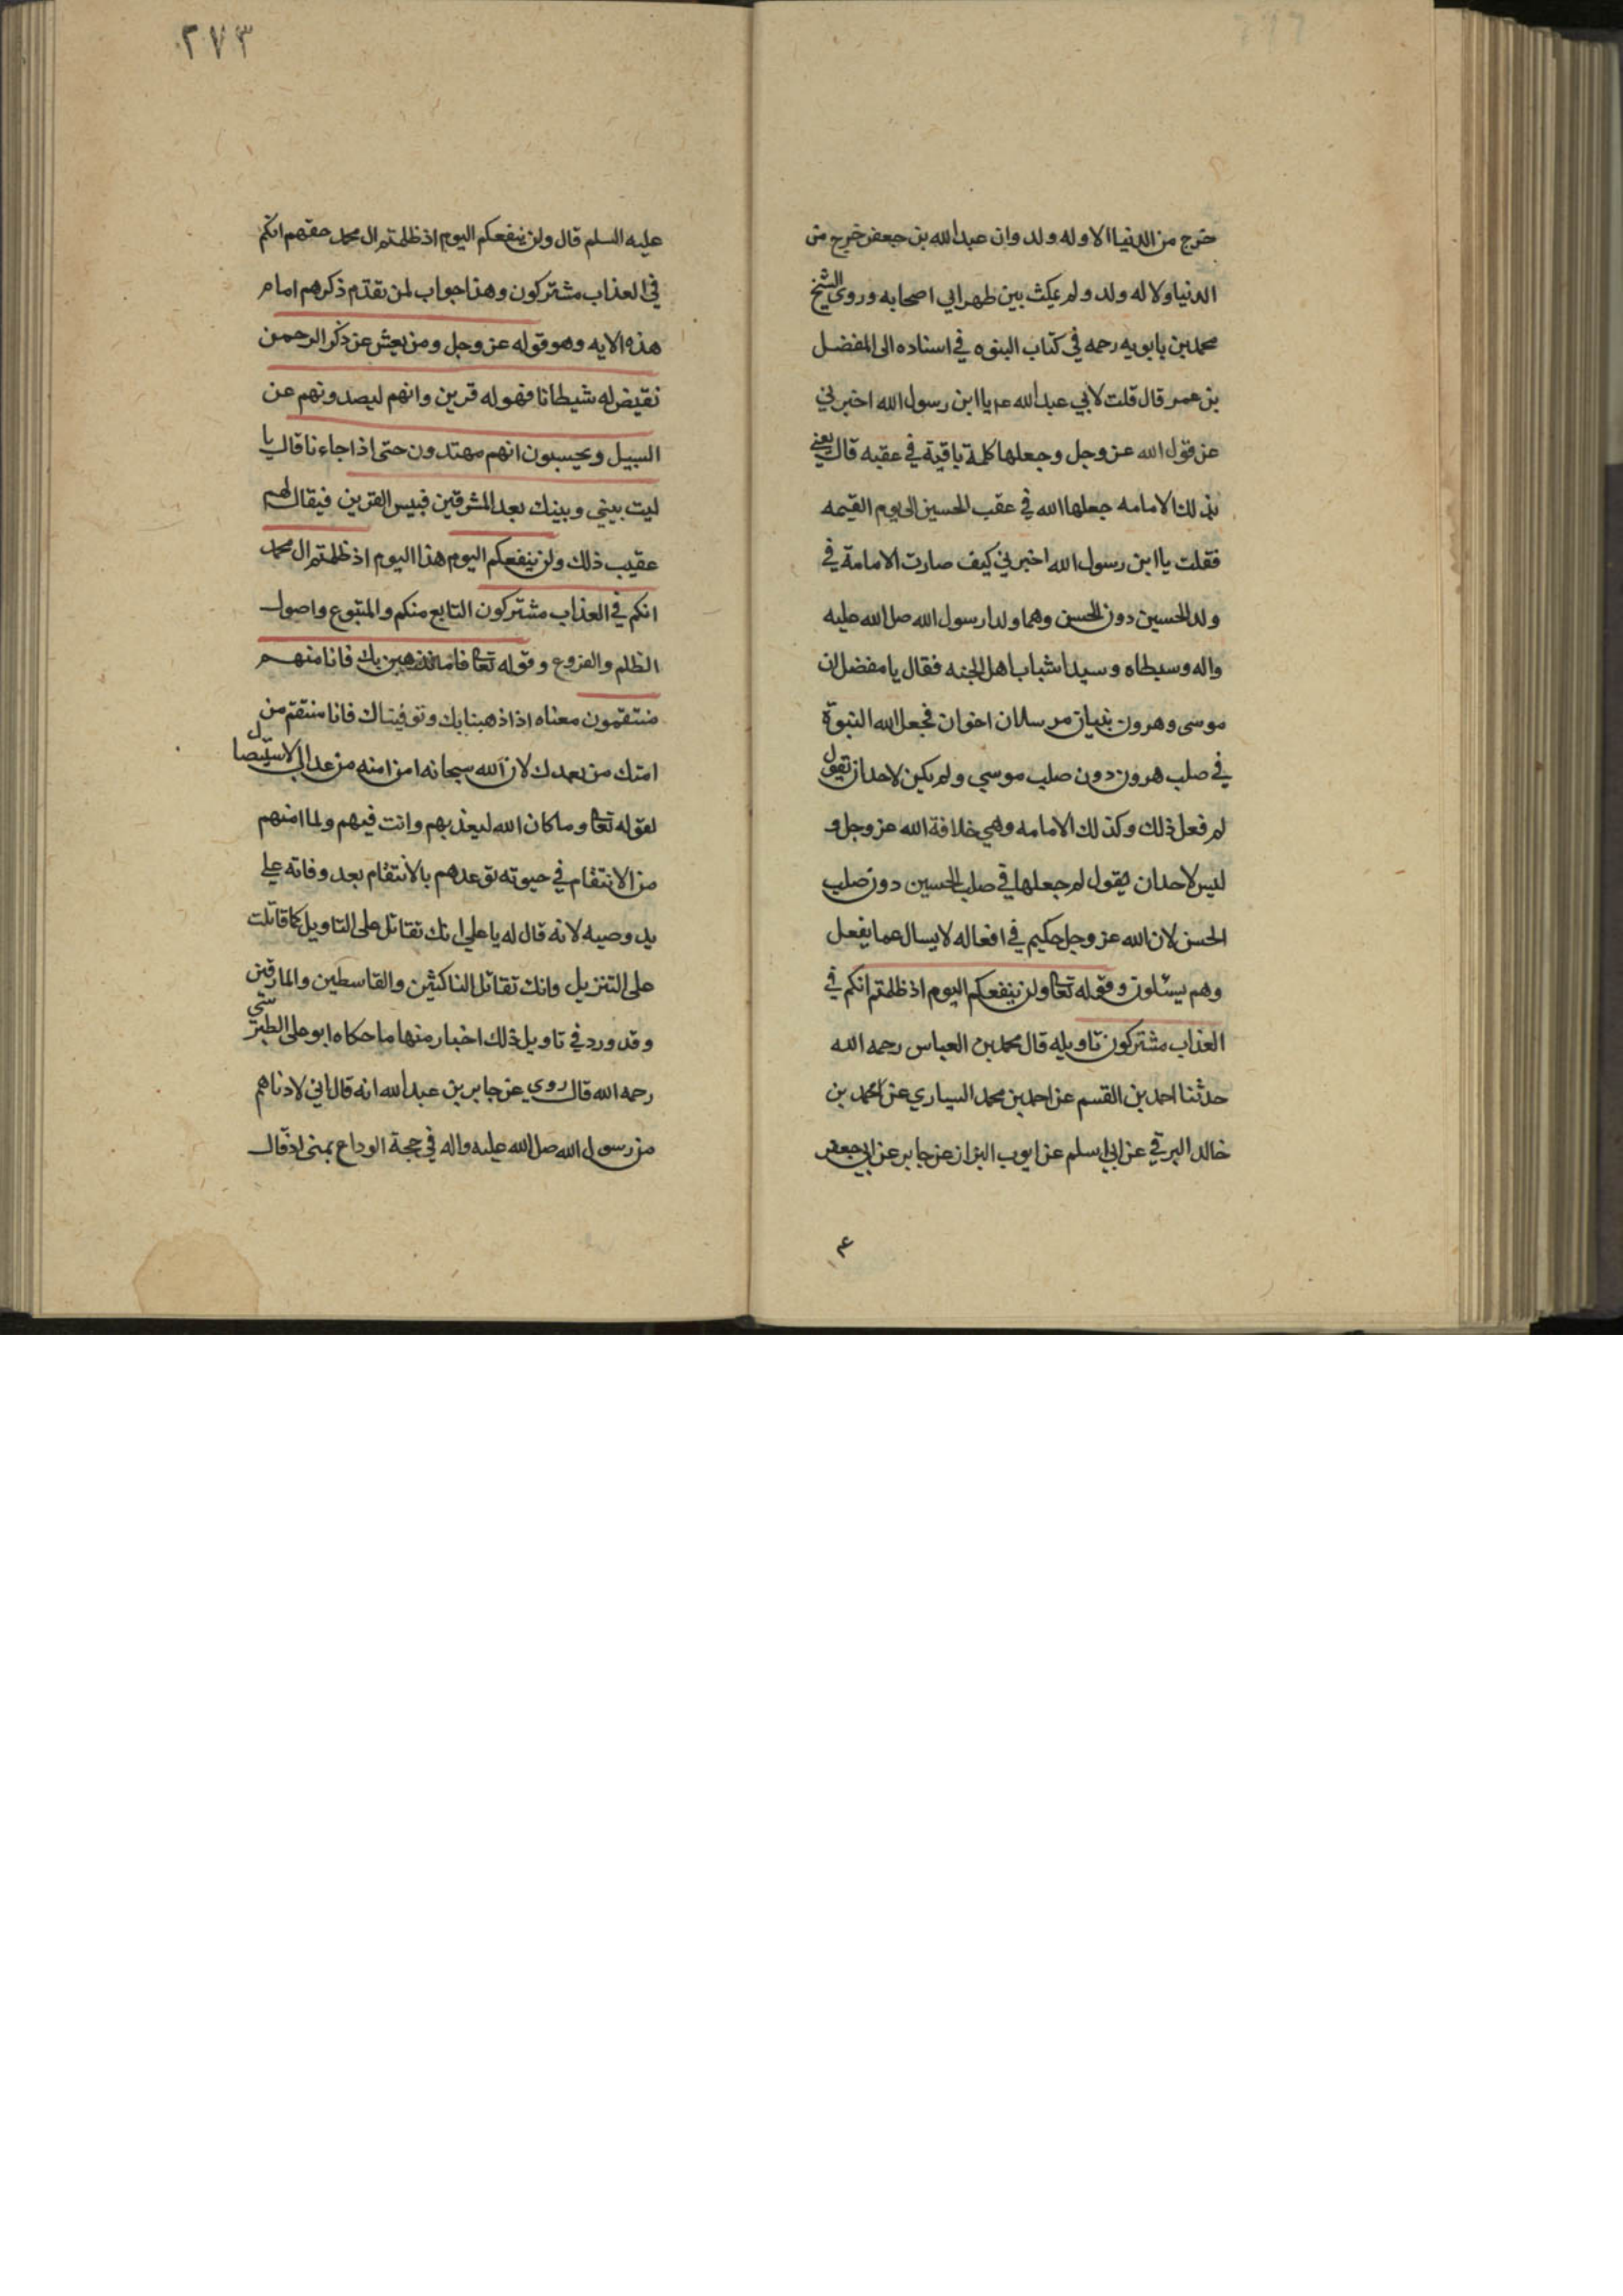 خرج من الدنيا الا وله ولد وان عبد الله بن جعفر خرج من
الدنيا ولا له ولد ولم يمكث بين ظهراني اصحابه وروى الشيخ
محمد بن بابويه رحمه في كتاب النبوه في اسناده الى المفضل
بن عمر قال قلت لابي عبد الله عم يا ابن رسول الله اخبرني
عن قول الله عز وجل وجعلها كلمة باقية في عقبه قال يعني
بذلك الامامه جعلها الله في عقب الحسين الى يوم القيمه
فقلت يا ابن رسول الله اخبرني كيف صارت الامامة في
ولد الحسين دون الحسن وهما ولدا رسول الله صل الله عليه
واله وسبطاه وسيدا شباب اهل الجنه فقال يا مفضل ان
موسى وهرون نبيان مرسلان اخوان فجعل الله النبوة
في صلب هرون دون صلب موسي ولم يكن لاحد ان يقول
لم فعل ذلك وكذلك الامامه وهي خلافة الله عز وجل و
ليس لاحد ان يقول لم جعلها في صلب الحسين دون صلب
الحسن لان الله عز وجل حكيم في افعاله لا يسال عما يفعل
وهم يسئلون وقوله تعا ولن ينفعكم اليوم اذ ظلمتم انكم في
العذاب مشتركون تاويله قال محمد بن العباس رحمه الله
حدثنا احمد بن القسم عن احمد بن محمد السياري عن محمد بن
خالد البرقي عن ابي اسلم عن ايوب البزاز عن جابر عن ابي جعفر
ع
٢٧٣
عليه السلم قال ولن ينفعكم اليوم اذ ظلمتم ال محمد حقهم انكم
في العذاب مشتركون وهذا جواب لمن تقدم ذكرهم امام
هذه الايه وهو قوله عز وجل ومن يعش عن ذكر الرحمن
نقيض له شيطانا فهو له قرين وانهم ليصدونهم عن
السبيل ويحسبون انهم مهتدون حتى اذا جاءنا قال يا
ليت بيني وبينك بعد المشرقين فبيس القرين فيقال لهم
عقيب ذلك ولن ينفعكم اليوم هذا اليوم اذ ظلمتم ال محمد
انكم في العذاب مشتركون التابع منكم والمتبوع واصول
الظلم والفروع وقوله تعا فاما نذهبن بك فانا منهم
منتقمون معناه اذا ذهبنا بك وتوفيناك فانا منتقم من
امتك من بعدك لان الله سبحانه امن امته من عذاب الاستيصال
لقوله تعا وما كان الله ليعذبهم وانت فيهم ولما امنهم
من الانتقام في حيوته توعدهم بالانتقام بعد وفاته علي
يد وصيه لانه قال له يا علي انك تقاتل على التاويل كما قاتلت
على التنزيل وانك تقاتل الناكثين والقاسطين والمارقين
وقد ورد في تاويل ذلك اخبار منها ما حكاه ابو علي الطبرسي
رحمه الله قال روي عن جابر بن عبد الله انه قال اني لادناهم
من رسول الله صل الله عليه واله في حجة الوداع بمنى اذ قال